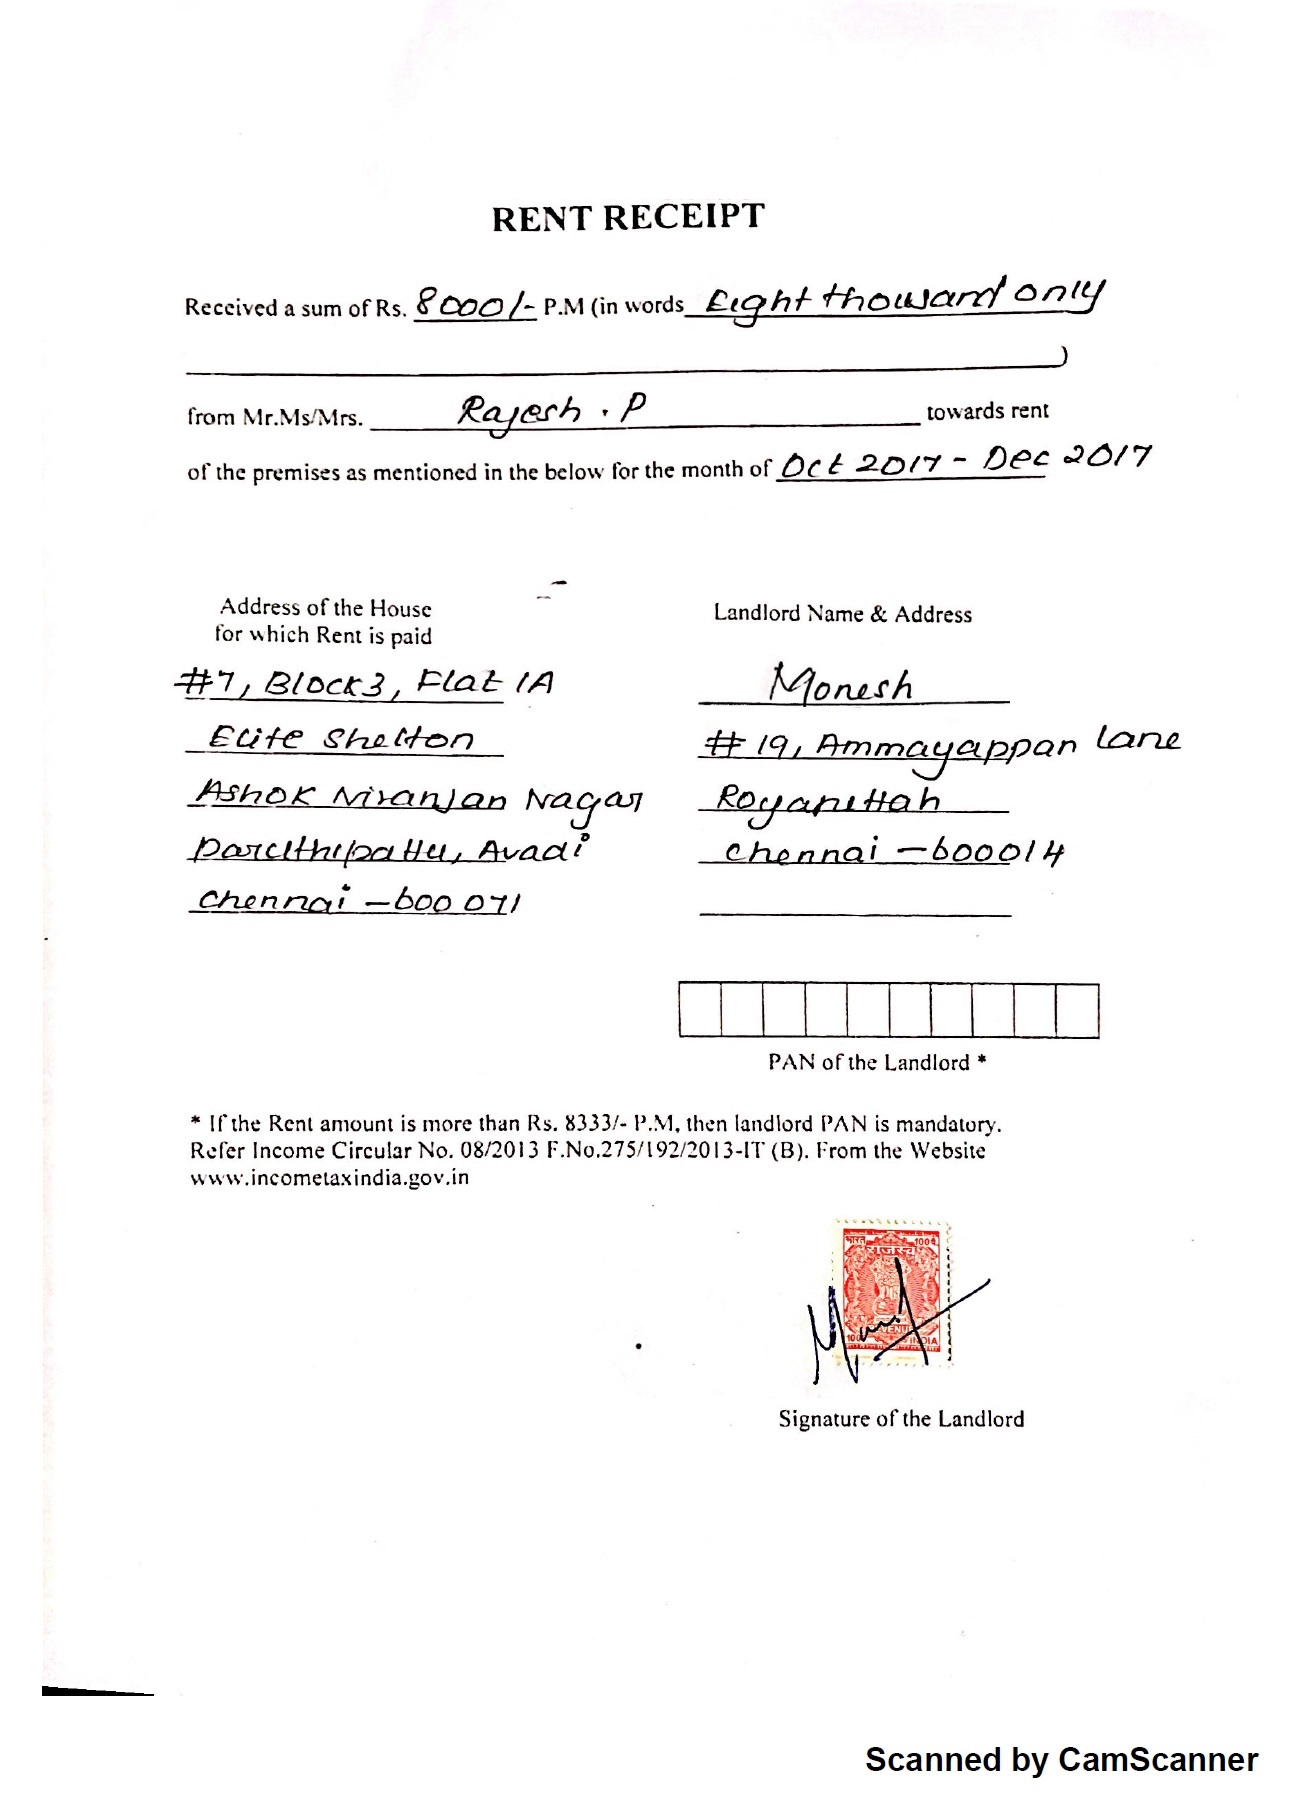 RENT RECEIPT
Received a sum of Rs. 8000/- P.M (in words Eight thousand only
)
from Mr.Ms/Mrs. Rajesh . P towards rent
of the premises as mentioned in the below for the month of Oct 2017 - Dec 2017
Address of the House
for which Rent is paid
#7, Block3, Flat 1A
Elite Shelton
Ashok Niranjan Nagar
Paruthipattu, Avadi
Chennai - 600 071
Landlord Name & Address
Monesh
# 19, Ammayappan Lane
Royapettah
Chennai - 600014
PAN of the Landlord *
* If the Rent amount is more than Rs. 8333/- P.M, then landlord PAN is mandatory.
Refer Income Circular No. 08/2013 F.No.275/192/2013-IT (B). From the Website
www.incometaxindia.gov.in
भारत 100
राजस्व
100 INDIA
Signature of the Landlord
Scanned by CamScanner